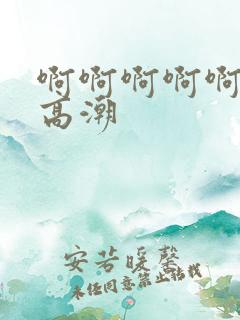 啊啊啊啊啊
高潮
安若暖馨
未经同意禁止转载